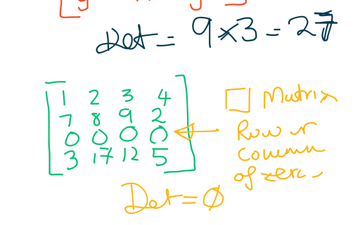 Det = 9×3 = 27
1 2 3 4
7 8 9 2
0 0 0 0
3 17 12 5
□ Matrix
Row or
column
of zero.
Det = 0